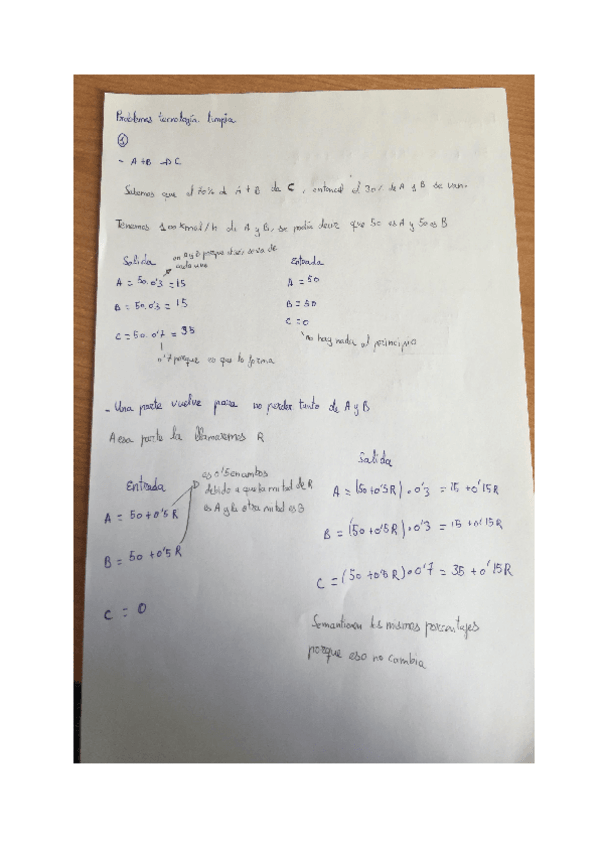 Problemas tecnología limpia
①
- A+B → C
Sabemos que el 70% de A + B da C, entonces el 30% de A y B se van.
Tenemos 100 kmol/h de A y B, se podría decir que 50 es A y 50 es B
Salida
en A y B porque
cada uno
Entrada
A = 50·0'3 = 15
A = 50
B = 50·0'3 = 15
B = 50
C = 50·0'7 = 35
C = 0
no hay nada al principio
0'7 porque es que lo forma
- Una parte vuelve para no perder tanto de A y B
A esa parte la llamaremos R
Entrada
es 0'5 en ambos
debido a que la mitad de R
es A y la otra mitad es B
Salida
A = 50 + 0'5R
A = (50 + 0'5R) · 0'3 = 15 + 0'15R
B = 50 + 0'5R
B = (50 + 0'5R) · 0'3 = 15 + 0'15R
C = 0
C = (50 + R) · 0'7 = 35 + 0'15R
Se mantienen los mismos porcentajes
porque eso no cambia